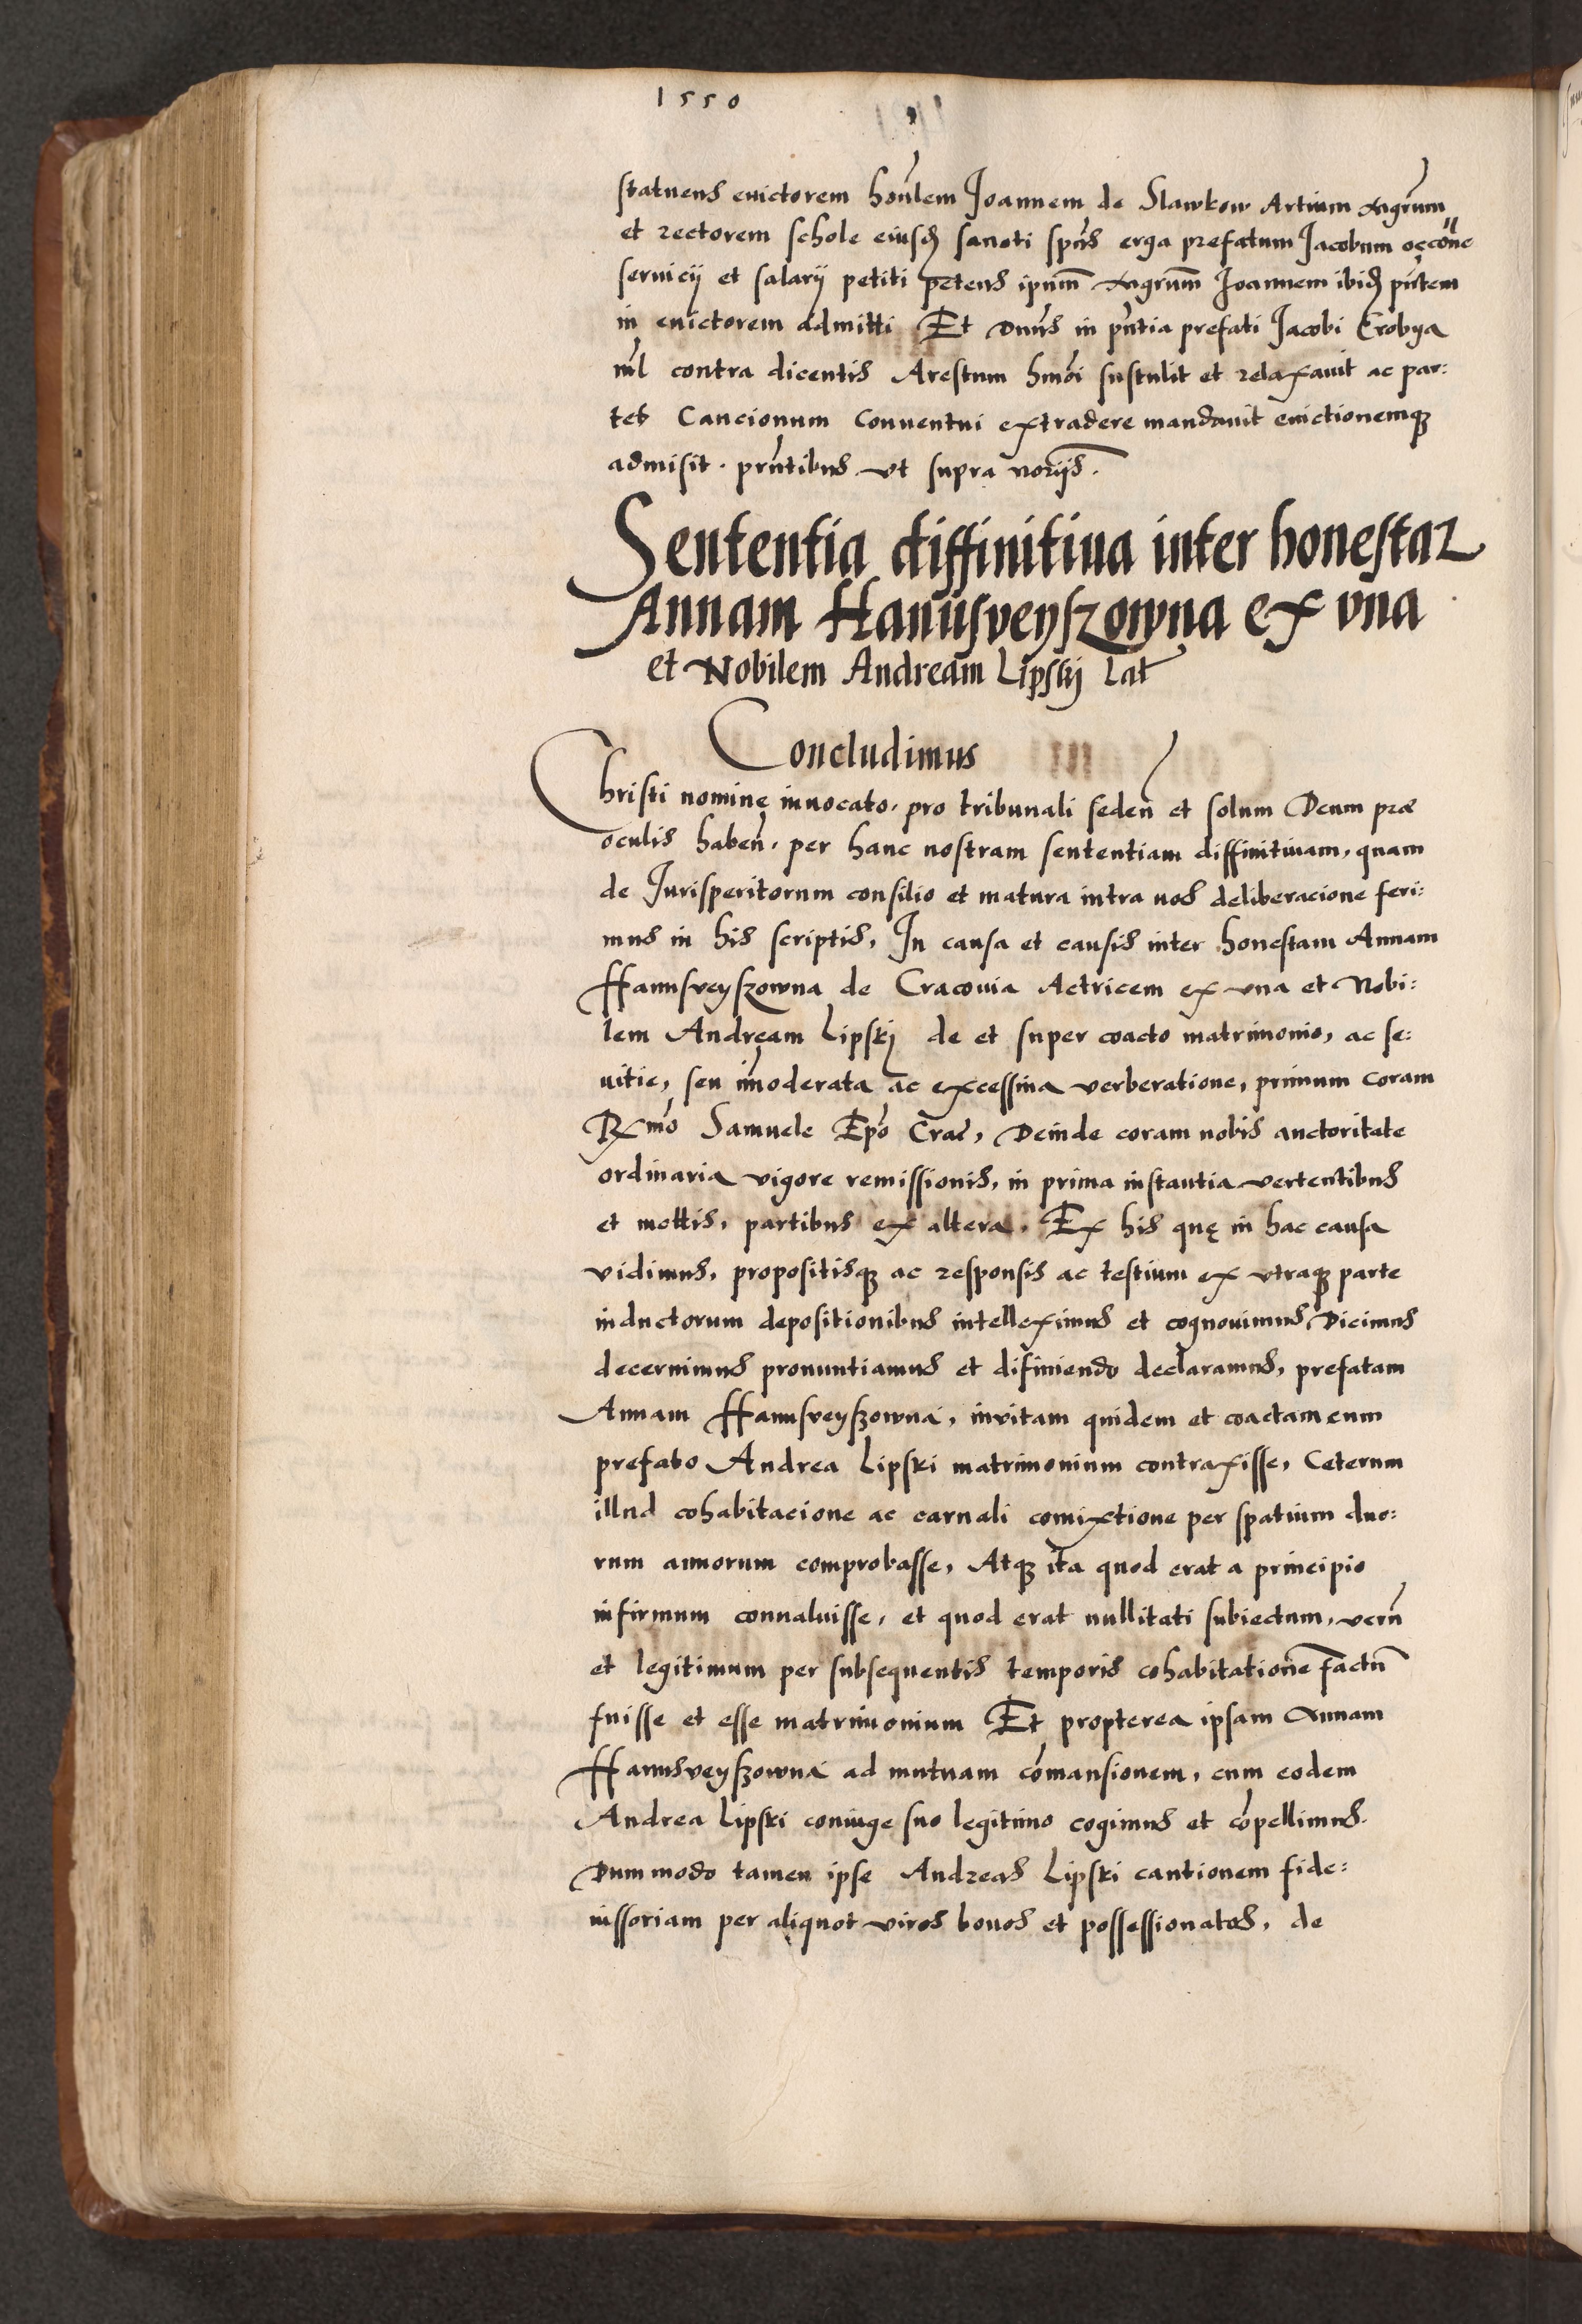 1550
statuens euictorem honlem Joannem de Slawkow Artium Mgrum
et rectorem schole eiusd sancti spus erga prefatum Jacobum occōne
seruicij et salarij petiti petens ipnm Mgrum Joannem ibid pntem
in euictorem admitti Et Dnus in pntia prefati Jacobi
nil contra dicentis Arestum hmoi sustulit et relaxauit ac par:
tes Cancionum Conuentui extradere mandauit euictionemq
admisit. prntibus vt supra noriis.
Sententia diffinitiua inter honestaz
Annam Hanusveyszowna ex vna
et Nobilem Andream Lipskij Lat
Concludimus
Christi nomine inuocato, pro tribunali seden et solum Deum præ
oculis haben, per hanc nostram sententiam diffinitiuam, quam
de Jurisperitorum consilio et matura intra nos deliberacione feri:
mus in his scriptis, In causa et causis inter honestam Annam
Hanusveyszowna de Cracouia Actricem ex vna et Nobi:
lem Andream Lipskj de et super coacto matrimonio, ac se:
uitie, seu imoderata ac excessiua verberatione, primum coram
Rmo Samuele Epo Crac, Deinde coram nobis auctoritate
ordinaria vigore remissionis, in prima instantia vertentibus
et mottis, partibus ex altera. Ex his quę in hac causa
vidimus, propositisq ac responsis ac testium ex vtraq parte
inductorum depositionibus intelleximus et cognouimus Dicimus
decernimus pronuntiamus et difiniendo declaramus, prefatam
Annam Hanusveyszowna, invitam quidem et coactam cum
prefato Andrea Lipski matrimonium contraxisse, Ceterum
illud cohabitacione ac carnali comixtione per spatium duo:
rum annorum comprobasse, Atq ita quod erat a principio
infirmum conualuisse, et quod erat nullitati subiectum, verū
et legitimum per subsequentis temporis cohabitatione factū
fuisse et esse matrimonium Et propterea ipsam Annam
Hanusveyszowna ad mutuam comansionem, cum eodem
Andrea Lipski coniuge suo legitimo cogimus et copellimus.
Dummodo tamen ipse Andreas Lipski cantionem fide:
iussoriam per aliquot viros bonos et possessionatos, de